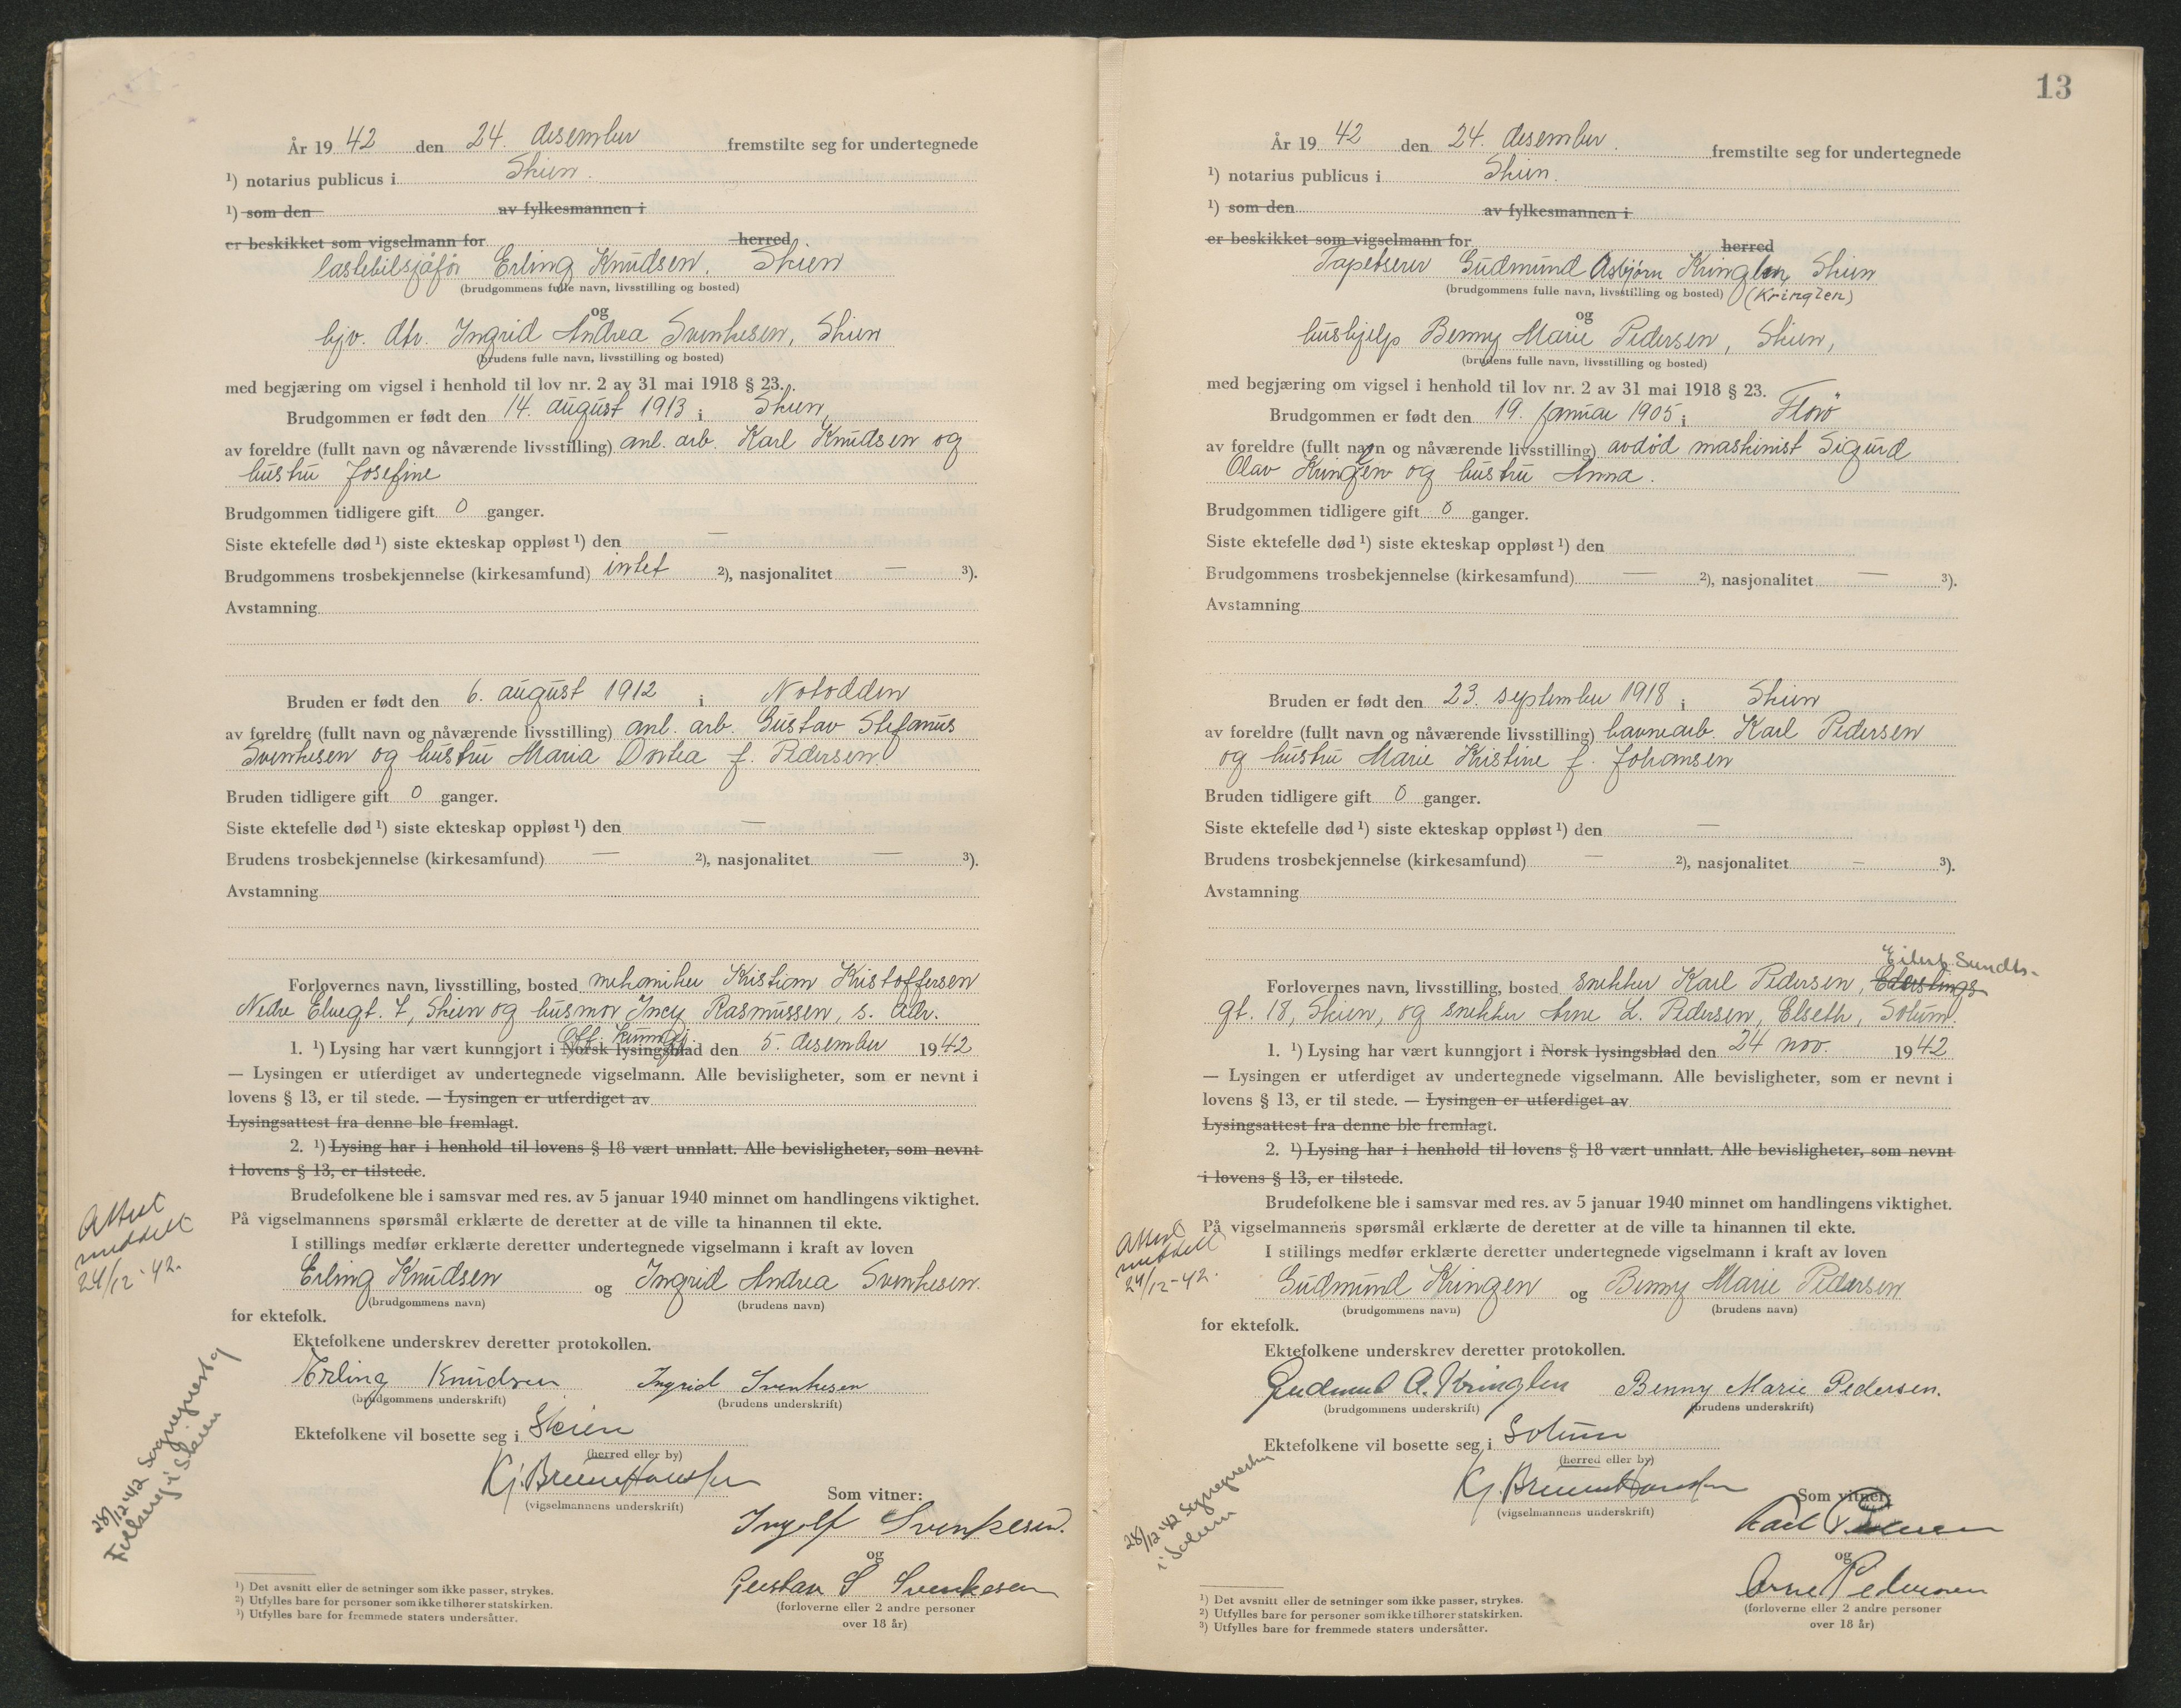 År 19 42 den 24. desember fremstilte seg for undertegnede
¹) notarius publicus i Skien.
¹) som den av fylkesmannen i
er beskikket som vigselmann for herred
lastebilsjåfør Erling Knudsen, Skien
(brudgommens fulle navn, livsstilling og bosted)
og
hjv. dtr. Ingrid Andrea Svenkesen, Skien
(brudens fulle navn, livsstilling og bosted)
med begjæring om vigsel i henhold til lov nr. 2 av 31 mai 1918 § 23.
Brudgommen er født den 14. august 1913 i Skien,
av foreldre (fullt navn og nåværende livsstilling) anl. arb. Karl Knudsen og
hustru Josefine
Brudgommen tidligere gift 0 ganger.
Siste ektefelle død ¹) siste ekteskap oppløst ¹) den —
Brudgommens trosbekjennelse (kirkesamfund) intet ²), nasjonalitet — ³).
Avstamning
Bruden er født den 6. august 1912 i Notodden
av foreldre (fullt navn og nåværende livsstilling) anl. arb. Gustav Stefanus
Svenkesen og hustru Maria Dortea f. Pedersen.
Bruden tidligere gift 0 ganger.
Siste ektefelle død ¹) siste ekteskap oppløst ¹) den —
Brudens trosbekjennelse (kirkesamfund) — ²), nasjonalitet — ³).
Avstamning
Forlovernes navn, livsstilling, bosted mekaniker Kristian Kristoffersen
Nedre Elvegt. 7, Skien og husmor Incy Rasmussen, s. adr.
Off. kunngj.
1. ¹) Lysing har vært kunngjort i Norsk lysingsblad den 5. desember 1942
— Lysingen er utferdiget av undertegnede vigselmann. Alle bevisligheter, som er nevnt i
lovens § 13, er til stede. — Lysingen er utferdiget av
Lysingsattest fra denne ble fremlagt.
2. ¹) Lysing har i henhold til lovens § 18 vært unnlatt. Alle bevisligheter, som nevnt
i lovens § 13, er tilstede.
Brudefolkene ble i samsvar med res. av 5 januar 1940 minnet om handlingens viktighet.
På vigselmannens spørsmål erklærte de deretter at de ville ta hinannen til ekte.
I stillings medfør erklærte deretter undertegnede vigselmann i kraft av loven
Erling Knudsen og Ingrid Andrea Svenkesen.
(brudgommens navn) (brudens navn)
for ektefolk.
Ektefolkene underskrev deretter protokollen.
Erling Knudsen Ingrid Svenkesen
(brudgommens underskrift) (brudens underskrift)
Ektefolkene vil bosette seg i Skien
(herred eller by)
Kj. Bruun Hanssen
(vigselmannens underskrift)
Som vitner:
Ingolf Svenkesen.
og
Gustav S Svenkesen
(forloverne eller 2 andre personer
over 18 år)
¹) Det avsnitt eller de setninger som ikke passer, strykes.
²) Utfylles bare for personer som ikke tilhører statskirken.
³) Utfylles bare for fremmede staters undersåtter.
Attest
meddelt
24/12-42.
28/12 42 Sogneprest og
Folkereg. i Skien
13
År 19 42 den 24. desember. fremstilte seg for undertegnede
¹) notarius publicus i Skien.
¹) som den av fylkesmannen i
er beskikket som vigselmann for herred
Tapetserer Gudmund Asbjørn Kringlen, Skien
(brudgommens fulle navn, livsstilling og bosted) (Kringlen)
og
hushjelp Benny Marie Pedersen, Skien,
(brudens fulle navn, livsstilling og bosted)
med begjæring om vigsel i henhold til lov nr. 2 av 31 mai 1918 § 23.
Brudgommen er født den 19. januar 1905 i Florö
av foreldre (fullt navn og nåværende livsstilling) avdød maskinist Sigurd
Olav Kringlen og hustru Anna.
Brudgommen tidligere gift 0 ganger.
Siste ektefelle død ¹) siste ekteskap oppløst ¹) den —
Brudgommens trosbekjennelse (kirkesamfund) — ²), nasjonalitet — ³).
Avstamning
Bruden er født den 23. september 1918 i Skien
av foreldre (fullt navn og nåværende livsstilling) havnearb. Karl Pedersen
og hustru Marie Kristine f. Johansen
Bruden tidligere gift 0 ganger.
Siste ektefelle død ¹) siste ekteskap oppløst ¹) den —
Brudens trosbekjennelse (kirkesamfund) — ²), nasjonalitet — ³).
Avstamning
Eilert Sundts-
Forlovernes navn, livsstilling, bosted snekker Karl Pedersen,
gt. 18, Skien, og snekker Arne L. Pedersen, Elseth, Solum.
1. ¹) Lysing har vært kunngjort i Norsk lysingsblad den 24 nov. 1942
— Lysingen er utferdiget av undertegnede vigselmann. Alle bevisligheter, som er nevnt i
lovens § 13, er til stede. — Lysingen er utferdiget av
Lysingsattest fra denne ble fremlagt.
2. ¹) Lysing har i henhold til lovens § 18 vært unnlatt. Alle bevisligheter, som nevnt
i lovens § 13, er tilstede.
Brudefolkene ble i samsvar med res. av 5 januar 1940 minnet om handlingens viktighet.
På vigselmannens spørsmål erklærte de deretter at de ville ta hinannen til ekte.
I stillings medfør erklærte deretter undertegnede vigselmann i kraft av loven
Gudmund Kringen og Benny Marie Pedersen
(brudgommens navn) (brudens navn)
for ektefolk.
Ektefolkene underskrev deretter protokollen.
Gudmund A. Kringlen Benny Marie Pedersen.
(brudgommens underskrift) (brudens underskrift)
Ektefolkene vil bosette seg i Solum
(herred eller by)
Kj. Bruun Hanssen
(vigselmannens underskrift)
Som vitner:
Karl Pedersen
og
Arne Pedersen
(forloverne eller 2 andre personer
over 18 år)
¹) Det avsnitt eller de setninger som ikke passer, strykes.
²) Utfylles bare for personer som ikke tilhører statskirken.
³) Utfylles bare for fremmede staters undersåtter.
Attest
meddelt
24/12-42.
28/12 42 Sognepresten
i Solum